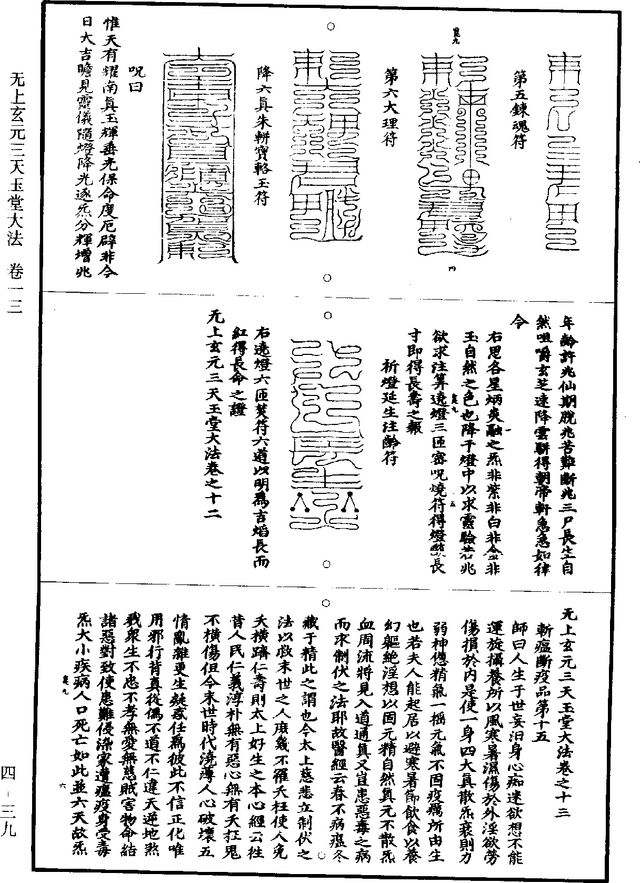 第五鍊魂符
第六大理符
降六真朱軿寶輅玉符
呪曰
惟天有耀南真玉輝垂光保命度厄辟非今
日大吉瞻見靈儀隨燈降光逐炁分輝增兆
年齡許兆仙期脫兆苦難斷兆三尸長生自
然咀嚼玄芝速降雲軿得朝帝軒急急如律
令
右思各星炳炎融之炁非紫非白非金非
玉自然之色也降于燈中以求靈驗若兆
欲求注算遶燈三匝密呪燒符得燈焰長
寸即得長壽之報
祈燈延生注齡符
右遶燈六匝焚符六道以明為吉焰長而
紅得長命之證
无上玄元三天玉堂大法卷之十二
无上玄元三天玉堂大法卷之十三
斬瘟斷疫品第十五
師曰人生于世妄汩身心痴迷欲想不能
運旋攝養所以風寒暑濕傷於外淫欲勞
傷損於內是使一身四大真散炁衰則力
弱神憊精氣一搖元氣不固疫癘所由生
也若夫人能起居以避寒暑節飲食以養
幻軀絕淫想以固元精自然真元不散炁
血周流將見入道通真又豈患惡毒之病
而求制伏之法耶故醫經云春不病瘟冬
藏于精此之謂也今太上慈悉立制伏之
法以救末世之人庶幾不罹夭枉使人免
夭橫躋仁壽則太上好生之本心經云往
昔人民仁義淳朴無有惡心無有夭枉鬼
不橫傷但今末世時代澆薄人心破壞五
情亂雜更生疑惑任為彼此不信正化唯
用邪行背真從偽不道不仁違天逆地煞
我眾生不忠不孝無愛無慈賊害物命結
諸惡對致使患難侵深家遭瘟疫身受毒
炁大小疾病人口死亡如此並六天故炁
无上玄元三天玉堂大法 卷一三
四－三九